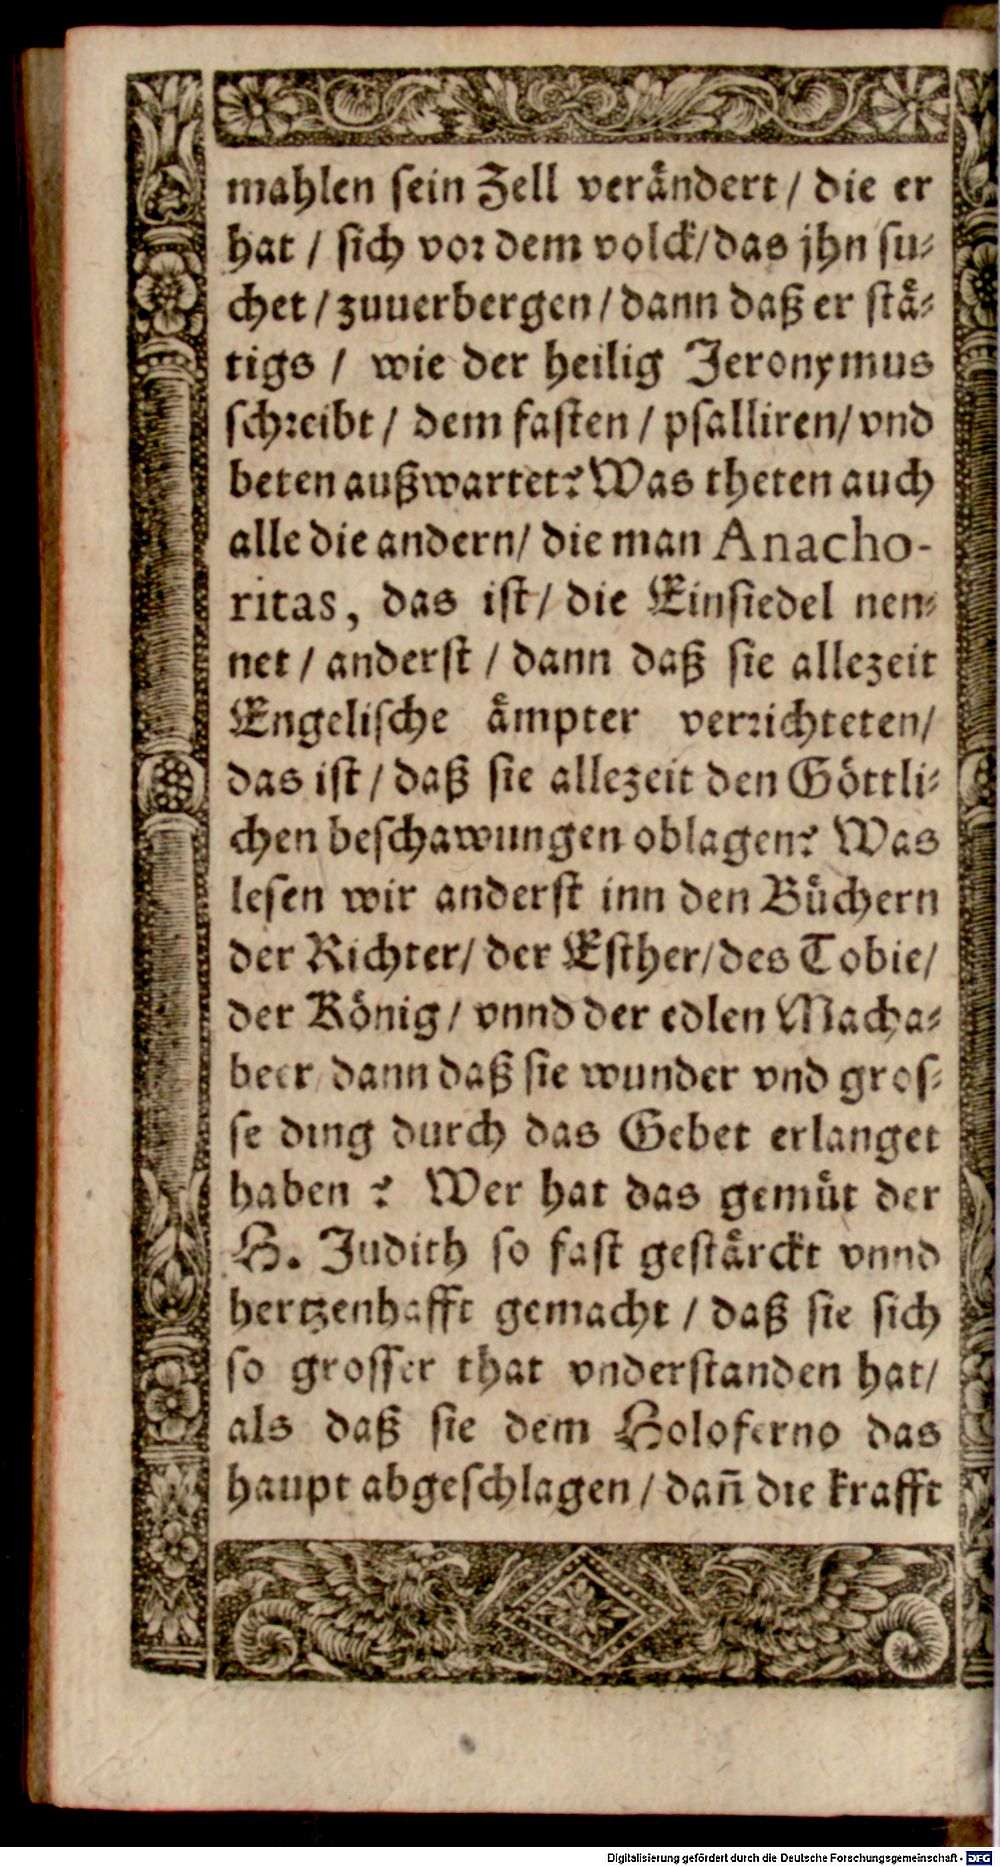 mahlen ſein Zell veraͤndert / die er
hat / ſich voꝛ dem volck / das jhn ſu⸗
chet / zuuerbergen / dann daß er ſtaͤ⸗
tigs / wie der heilig Jeronymus
ſchꝛeibt / dem faſten / pſalliren / vnd
beten außwartet? Was theten auch
alle die andern / die man Anacho-
ritas, das iſt / die Einſiedel nen⸗
net / anderſt / dann daß ſie allezeit
Engeliſche aͤmpter verꝛichteten /
das iſt / daß ſie allezeit den Goͤttli⸗
chen beſchawungen oblagen? Was
leſen wir anderſt inn den Buͤchern
der Richter / der Eſther / des Tobie /
der Koͤnig / vnnd der edlen Macha⸗
beer / dann daß ſie wunder vnd groſ⸗
ſe ding durch das Gebet erlanget
haben? Wer hat das gemuͤt der
H. Judith ſo faſt geſtaͤrckt vnnd
hertzenhafft gemacht / daß ſie ſich
ſo groſſer that vnderſtanden hat /
als daß ſie dem Holoferno das
haupt abgeſchlagen / dañ die krafft
Digitalisierung gefördert durch die Deutsche Forschungsgemeinschaft - DFG